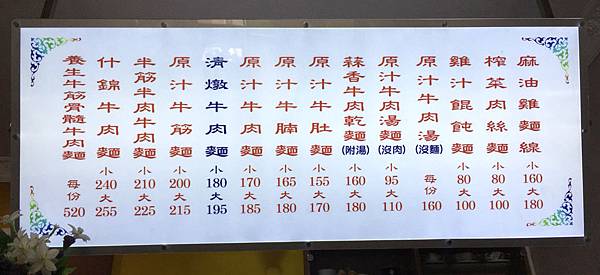 麻油雞麵線 小 160 大 180
榨菜肉絲麵 小 80 大 100
雞汁餛飩麵 小 80 大 100
原汁牛肉湯(沒麵) 每份 160
原汁牛肉湯麵(沒肉) 小 95 大 110
蒜香牛肉乾麵(附湯) 小 160 大 180
原汁牛肚麵 小 155 大 170
原汁牛腩麵 小 165 大 180
原汁牛肉麵 小 170 大 185
清燉牛肉麵 小 180 大 195
原汁牛筋麵 小 200 大 215
半筋半肉牛肉麵 小 210 大 225
什錦牛肉麵 小 240 大 255
養生牛筋骨髓牛肉麵 每份 520